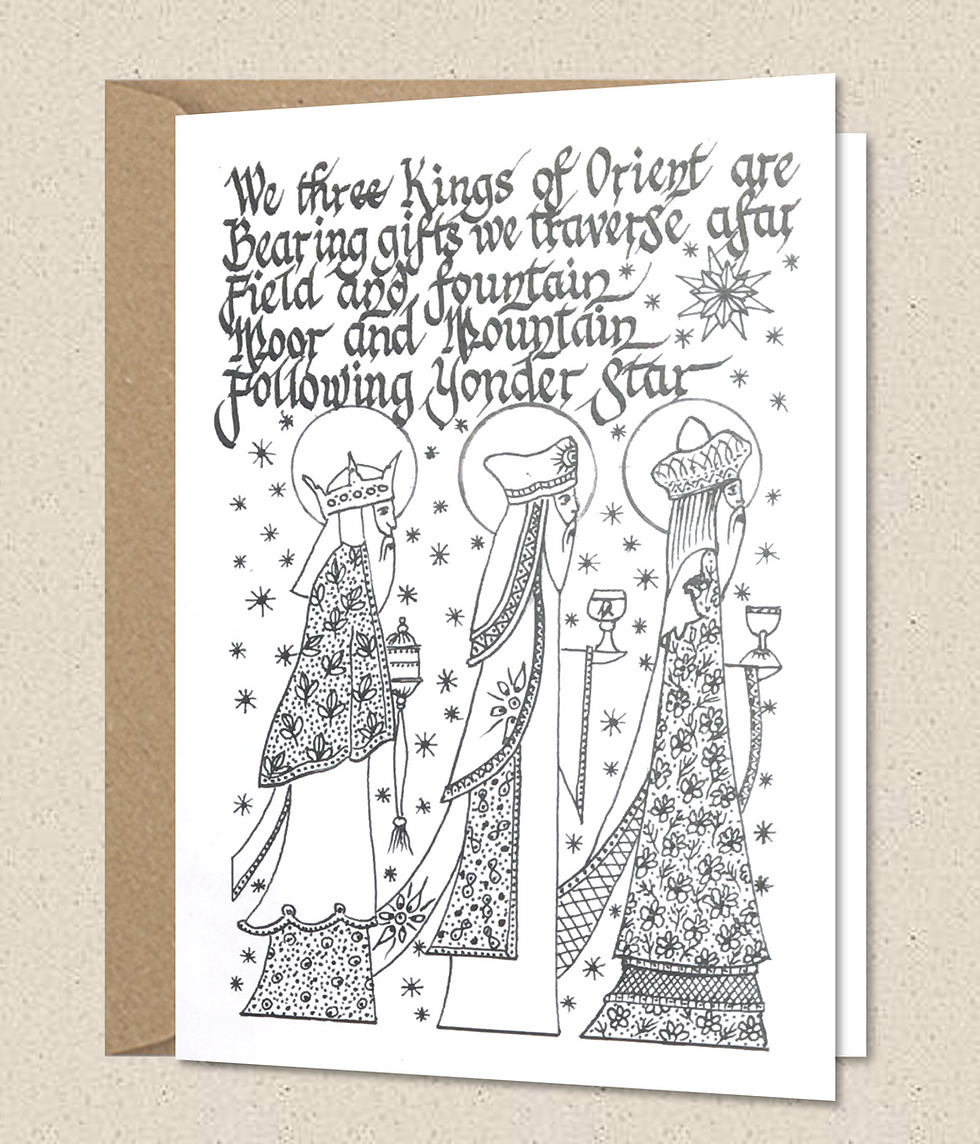 We three Kings of Orient are
Bearing gifts we traverse afar
Field and fountain
Moor and Mountain
Following Yonder Star